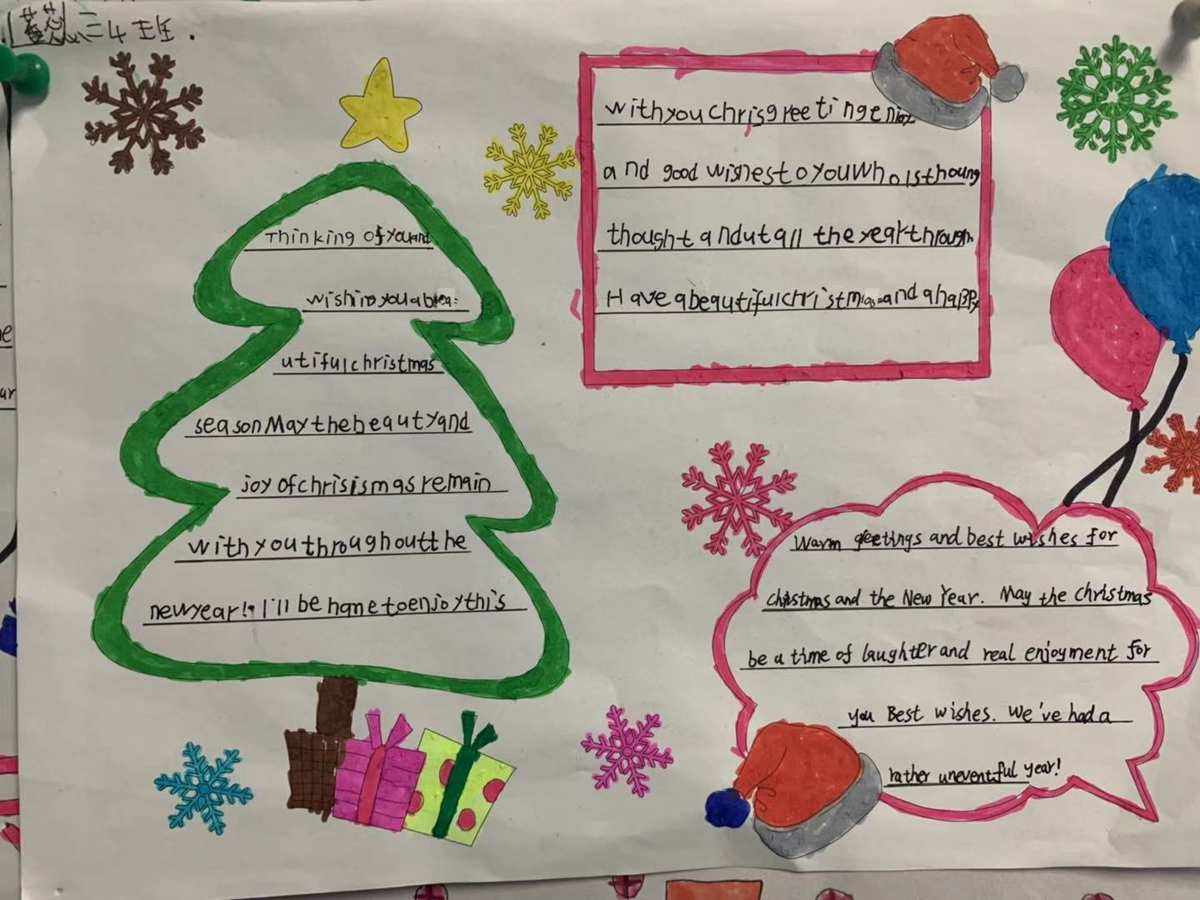 三4班.
Thinking of youand
wishinyouabea:
utifulchristmas
seasonMaythebeautyand
joyofchrisismasremain
withyouthroughoutthe
newyear!. I'll be hometoenjoythis
withyouchrisgreetingenjoy
and good wishestoyouwhoisthoung
thought andutall theyearthrough
Haveabeautifulchristmasandahappy
Warm greetings and best wishes for
christmas and the New Year. May the christmas
be a time of laughter and real enjoyment for
you Best wishes. We've had a
rather uneventful year!